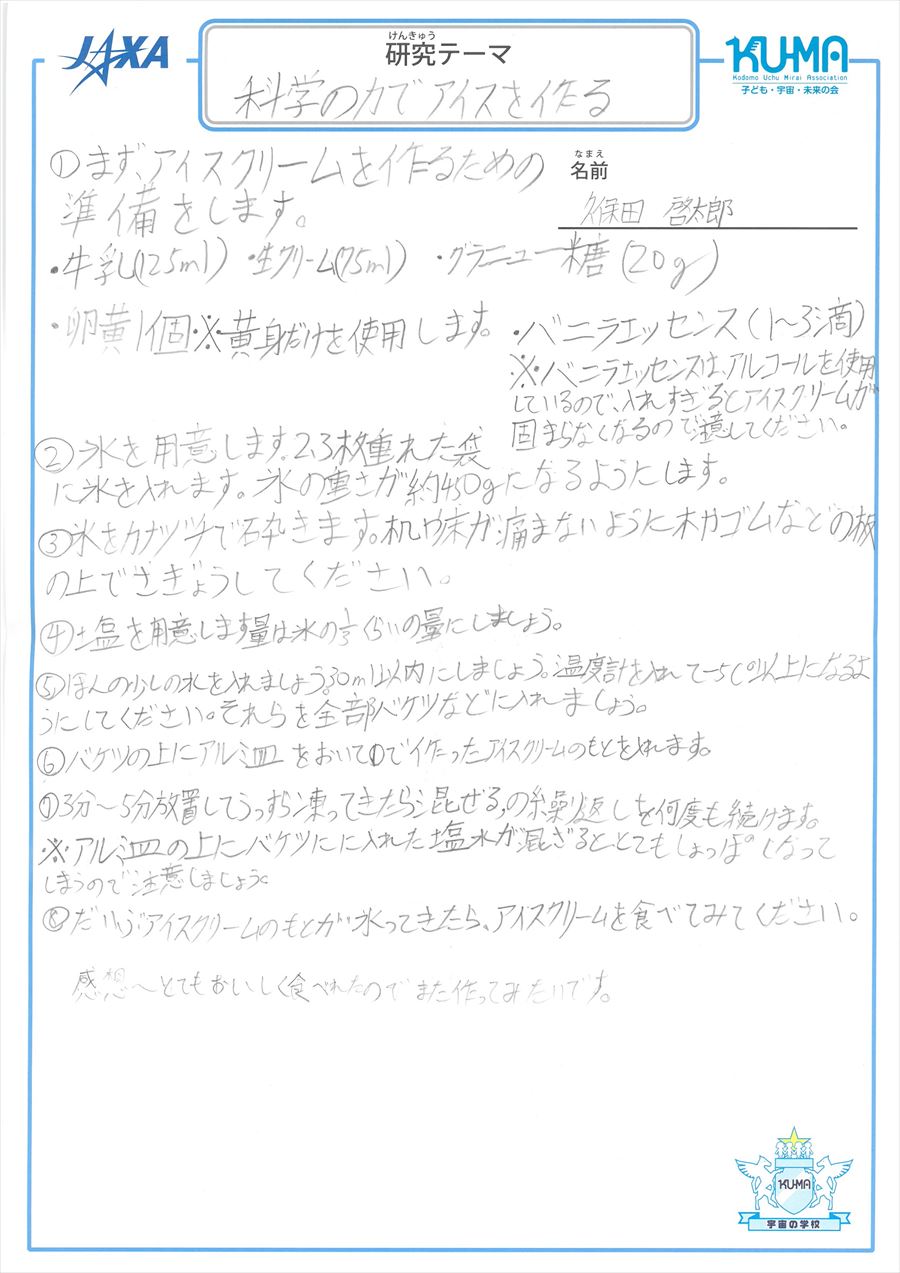 JAXA
けんきゅう
研究テーマ
科学の力でアイスを作る
KU-MA
Kodomo Uchu Mirai Association
子ども・宇宙・未来の会
①まず、アイスクリームを作るための
準備をします。
なまえ
名前
久保田 啓太郎
・牛乳(125ml) ・生クリーム(75ml) ・グラニュー糖(20g)
・卵黄1個※黄身だけを使用します。
・バニラエッセンス(1~3滴)
※バニラエッセンスは、アルコールを使用
しているので、入れすぎるとアイスクリームが
固まらなくなるので注意してください。
②氷を用意します。2.3枚重れた袋
に氷を入れます。氷の重さが約450gになるようにします。
③氷をカナヅチで砕きます。机や床が痛まないように木やゴムなどの板
の上でさぎょうしてください。
④塩を用意します量は氷の1/3くらいの量にしましょう。
⑤ほんの少しの水を入れましょう。30ml以内にしましょう。温度計を入れて-5℃以上になるよ
うにしてください。それらを全部バケツなどに入れましょう。
⑥バケツの上にアルミ皿をおいて①で作ったアイスクリームのもとを入れます。
⑦3分~5分放置してうっすら凍ってきたら混ぜる,の繰り返しを何度も続けます。
※アルミ皿の上にバケツにに入れた塩水が混ざるととてもしょっぱくなって
しまうので注意しましょう。
⑧だいぶアイスクリームのもとが氷ってきたら、アイスクリームを食べてみてください。
感想~とてもおいしく食べれたのでまた作ってみたいです。
KU-MA
宇宙の学校